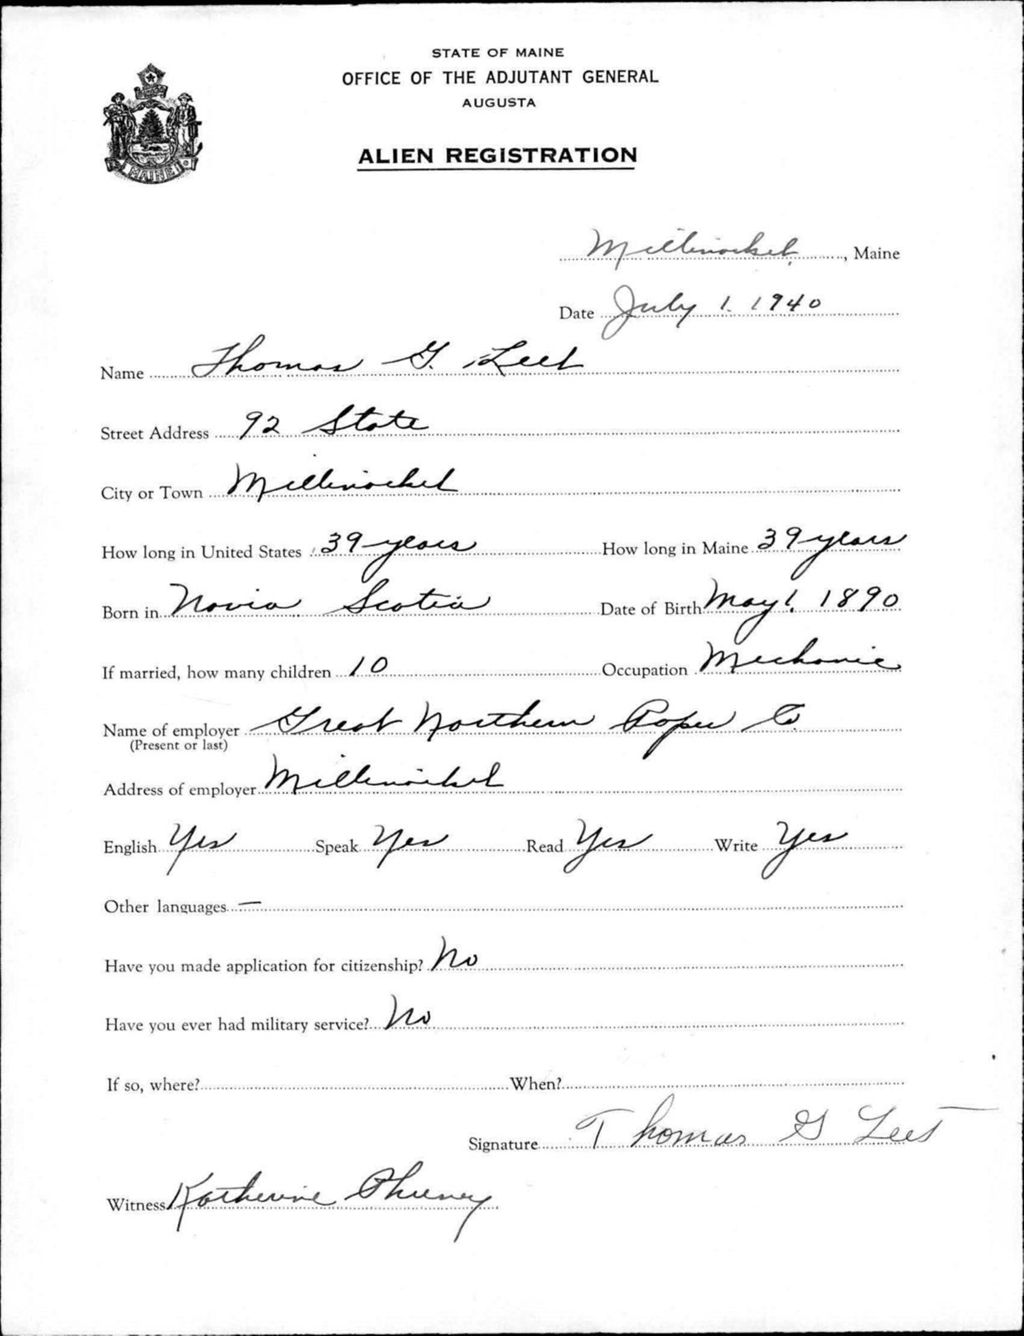 STATE OF MAINE
OFFICE OF THE ADJUTANT GENERAL
AUGUSTA
ALIEN REGISTRATION
MAINE
Millinocket, Maine
Date July 1. 1940
Name Thomas G. Leet
Street Address 92 State
City or Town Millinocket
How long in United States 39 years How long in Maine 39 years
Born in Novia Scotia Date of Birth May 1. 1890
If married, how many children 10 Occupation Mechanic
Name of employer Great Northern Paper Co.
(Present or last)
Address of employer Millinocket
English Yes Speak Yes Read Yes Write Yes
Other languages —
Have you made application for citizenship? No
Have you ever had military service? No
If so, where? When?
Signature Thomas G Leet
Witness Katherine Phinney